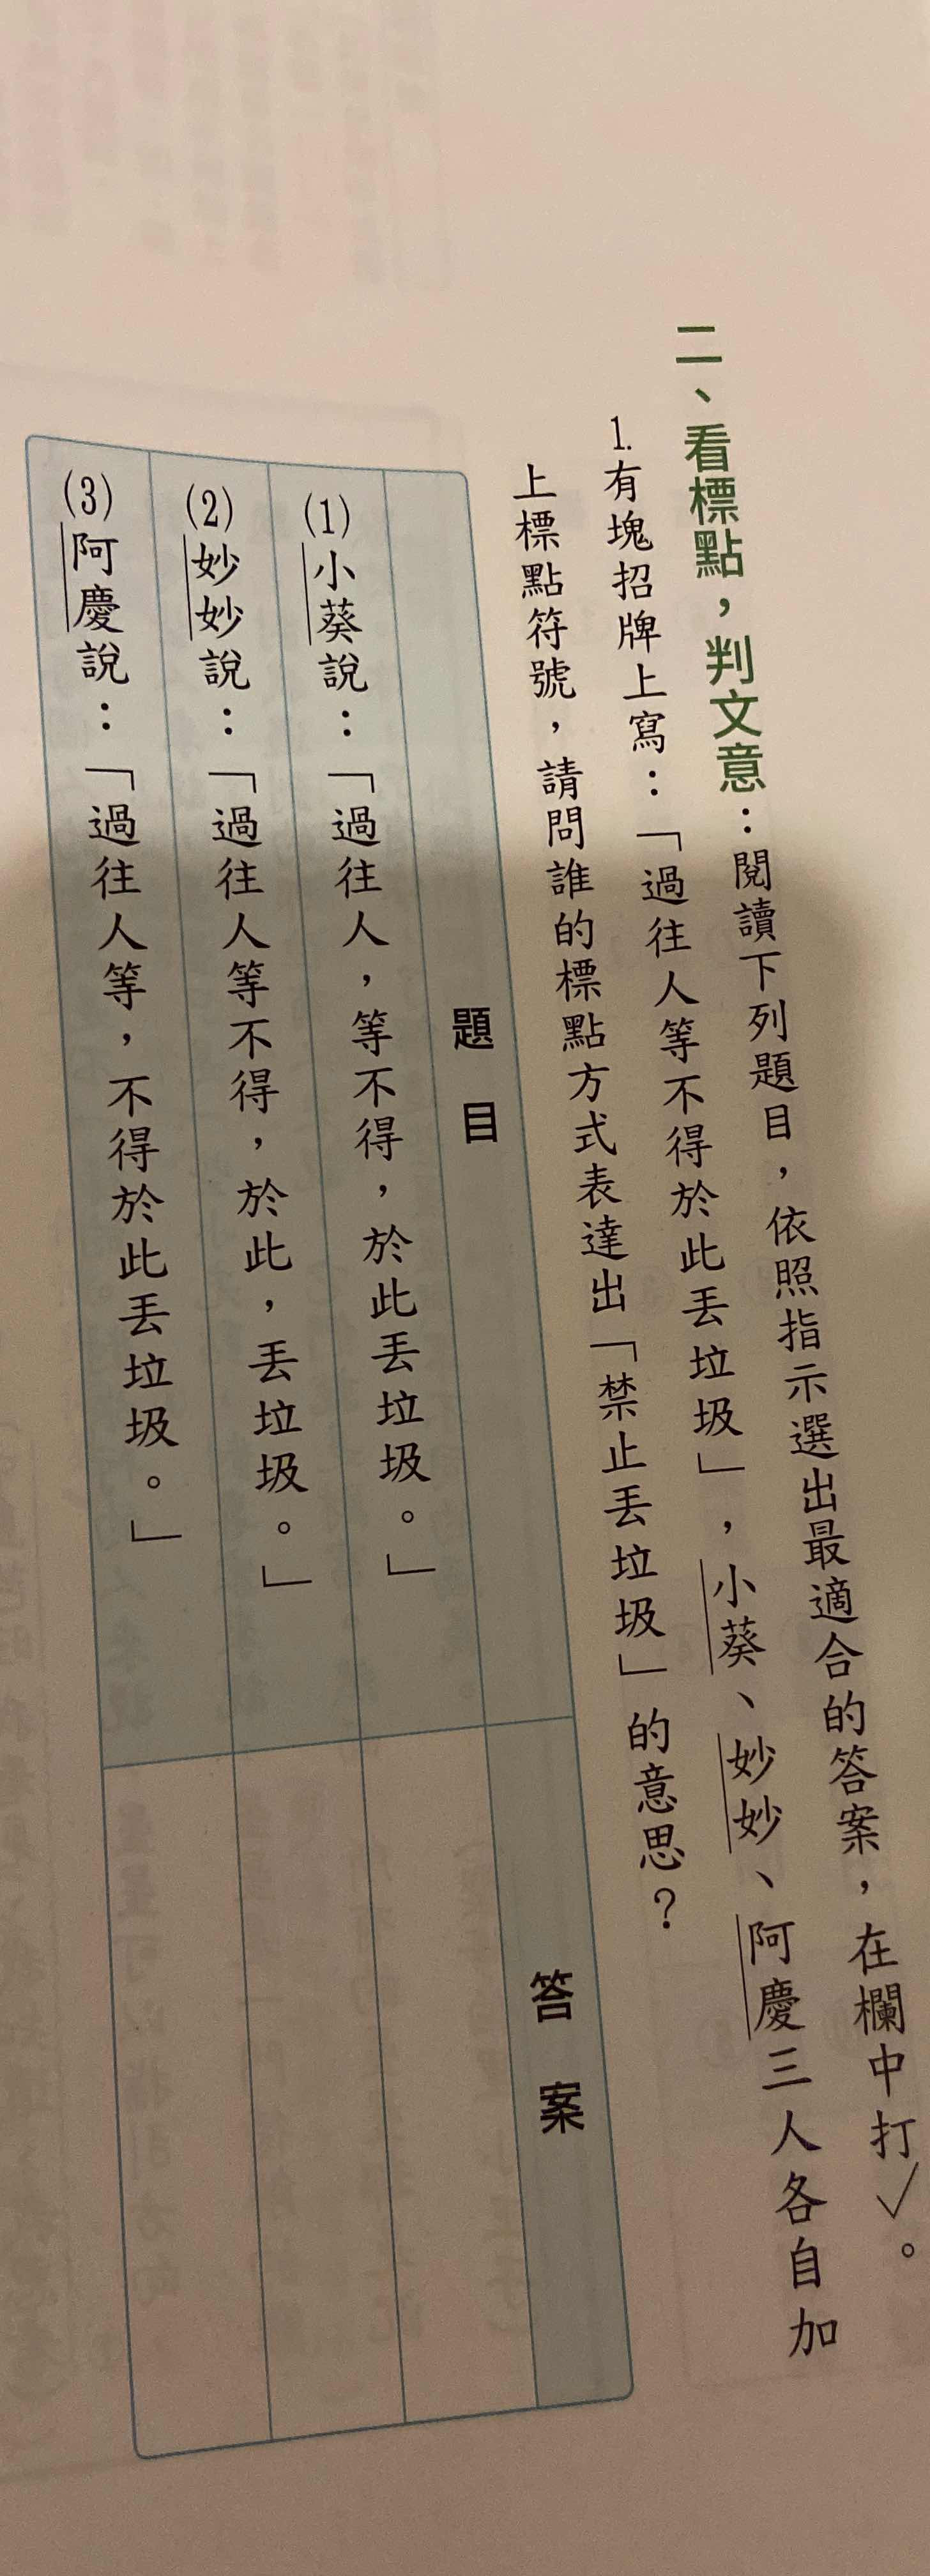 二、看標點，判文意：閱讀下列題目，依照指示選出最適合的答案，在欄中打✓。
1.有塊招牌上寫：「過往人等不得於此丟垃圾」，小葵、妙妙、阿慶三人各自加
上標點符號，請問誰的標點方式表達出「禁止丟垃圾」的意思？
題目
答案
(1)小葵說：「過往人，等不得，於此丟垃圾。」
(2)妙妙說：「過往人等不得，於此，丟垃圾。」
(3)阿慶說：「過往人等，不得於此丟垃圾。」